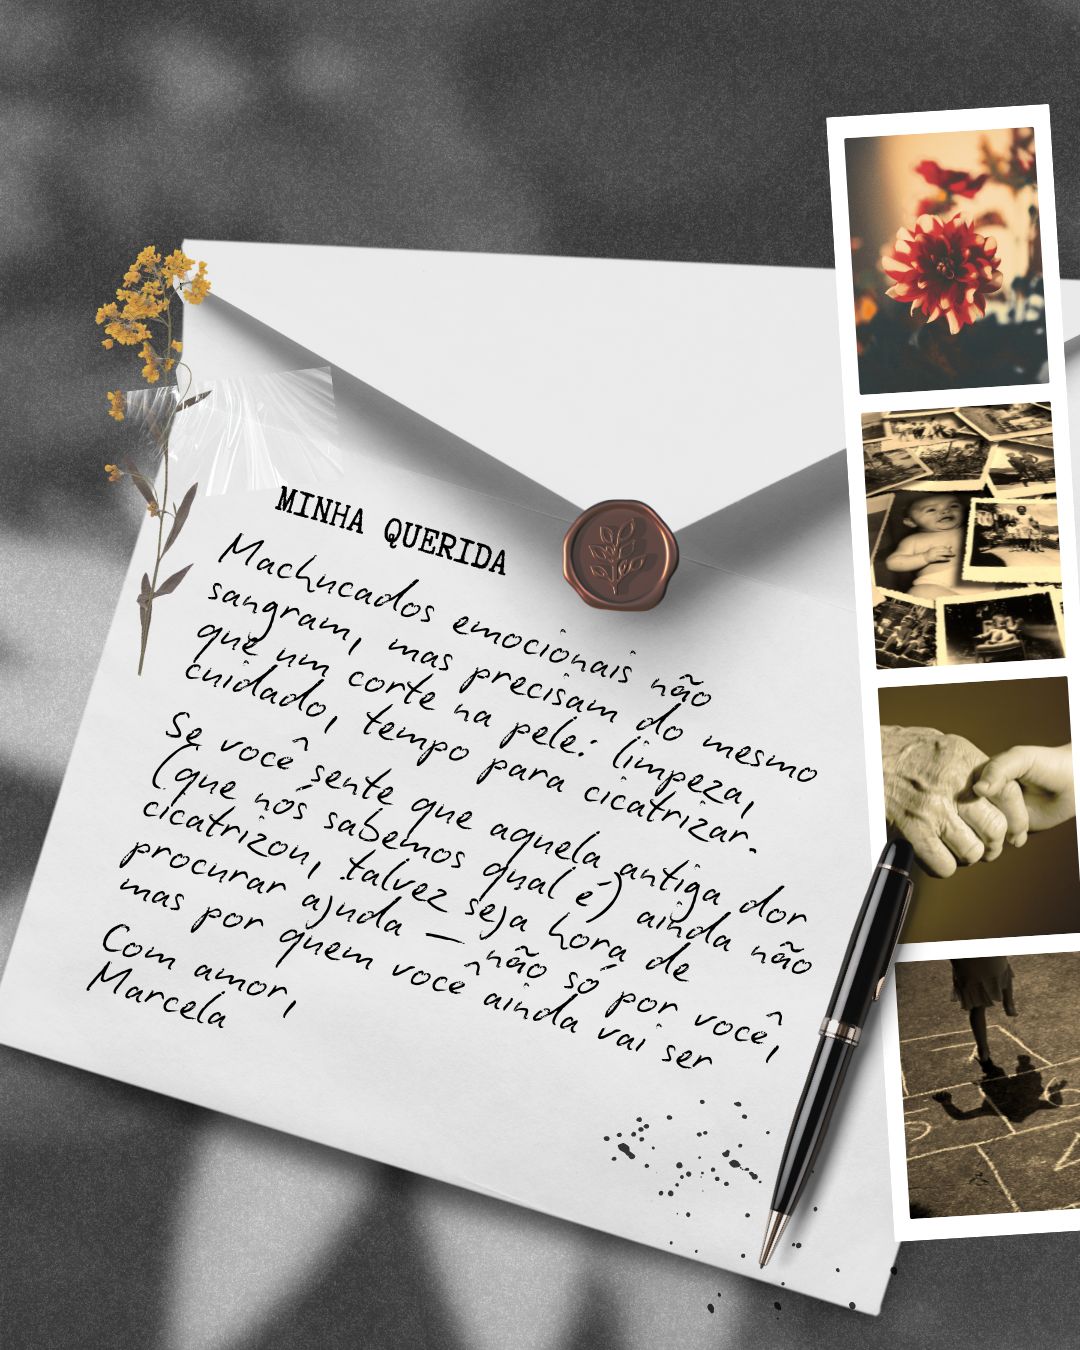 MINHA QUERIDA
Machucados emocionais não
sangram, mas precisam do mesmo
que um corte na pele: limpeza,
cuidado, tempo para cicatrizar.
Se você sente que aquela antiga dor
(que nós sabemos qual é) ainda não
cicatrizou, talvez seja hora de
procurar ajuda — não só por você,
mas por quem você ainda vai ser
Com amor,
Marcela